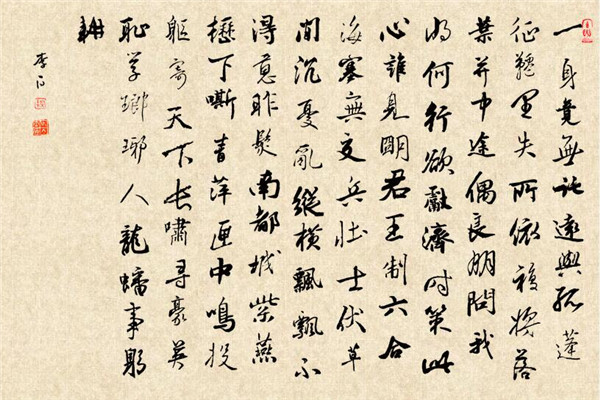 一身竟無託遠與孤蓬
征韆里失所依複將落
葉并中途偶良朋問我
将何行欲獻濟时策此
心誰見明君王制六合
海塞無交兵壮士伏草
間沉憂亂縱横飄飄不
得意昨髮南都城紫燕
櫪下嘶青萍匣中鳴投
軀寄天下长嘯尋豪英
恥学瑯琊人龍蟠事躬
耕
李白